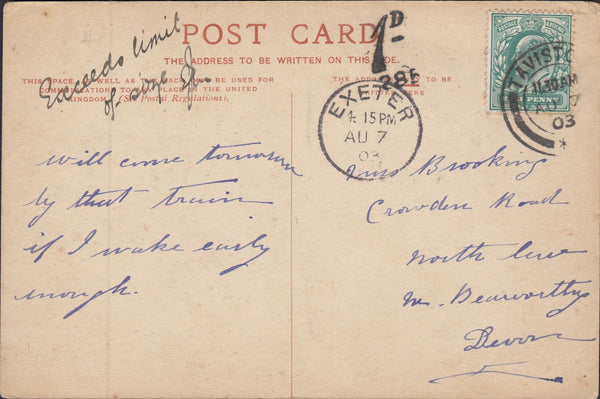 POST CARD.
THE ADDRESS TO BE WRITTEN ON THIS SIDE.
THIS SPACE, AS WELL AS THE BACK, MAY BE USED FOR
COMMUNICATIONS PLACE IN THE UNITED
KINGDOM (See Postal Regulations).
Exceeds limit
of size
1D
285
EXETER
4. 15 PM
AU 7
03
TAVISTO
11.30AM
AU 7
03
PENNY
will come tomorrow
by that train
if I wake early
enough.
Miss Brooking
Crowden Road
North Lew
Nr. Beaworthy
Devon